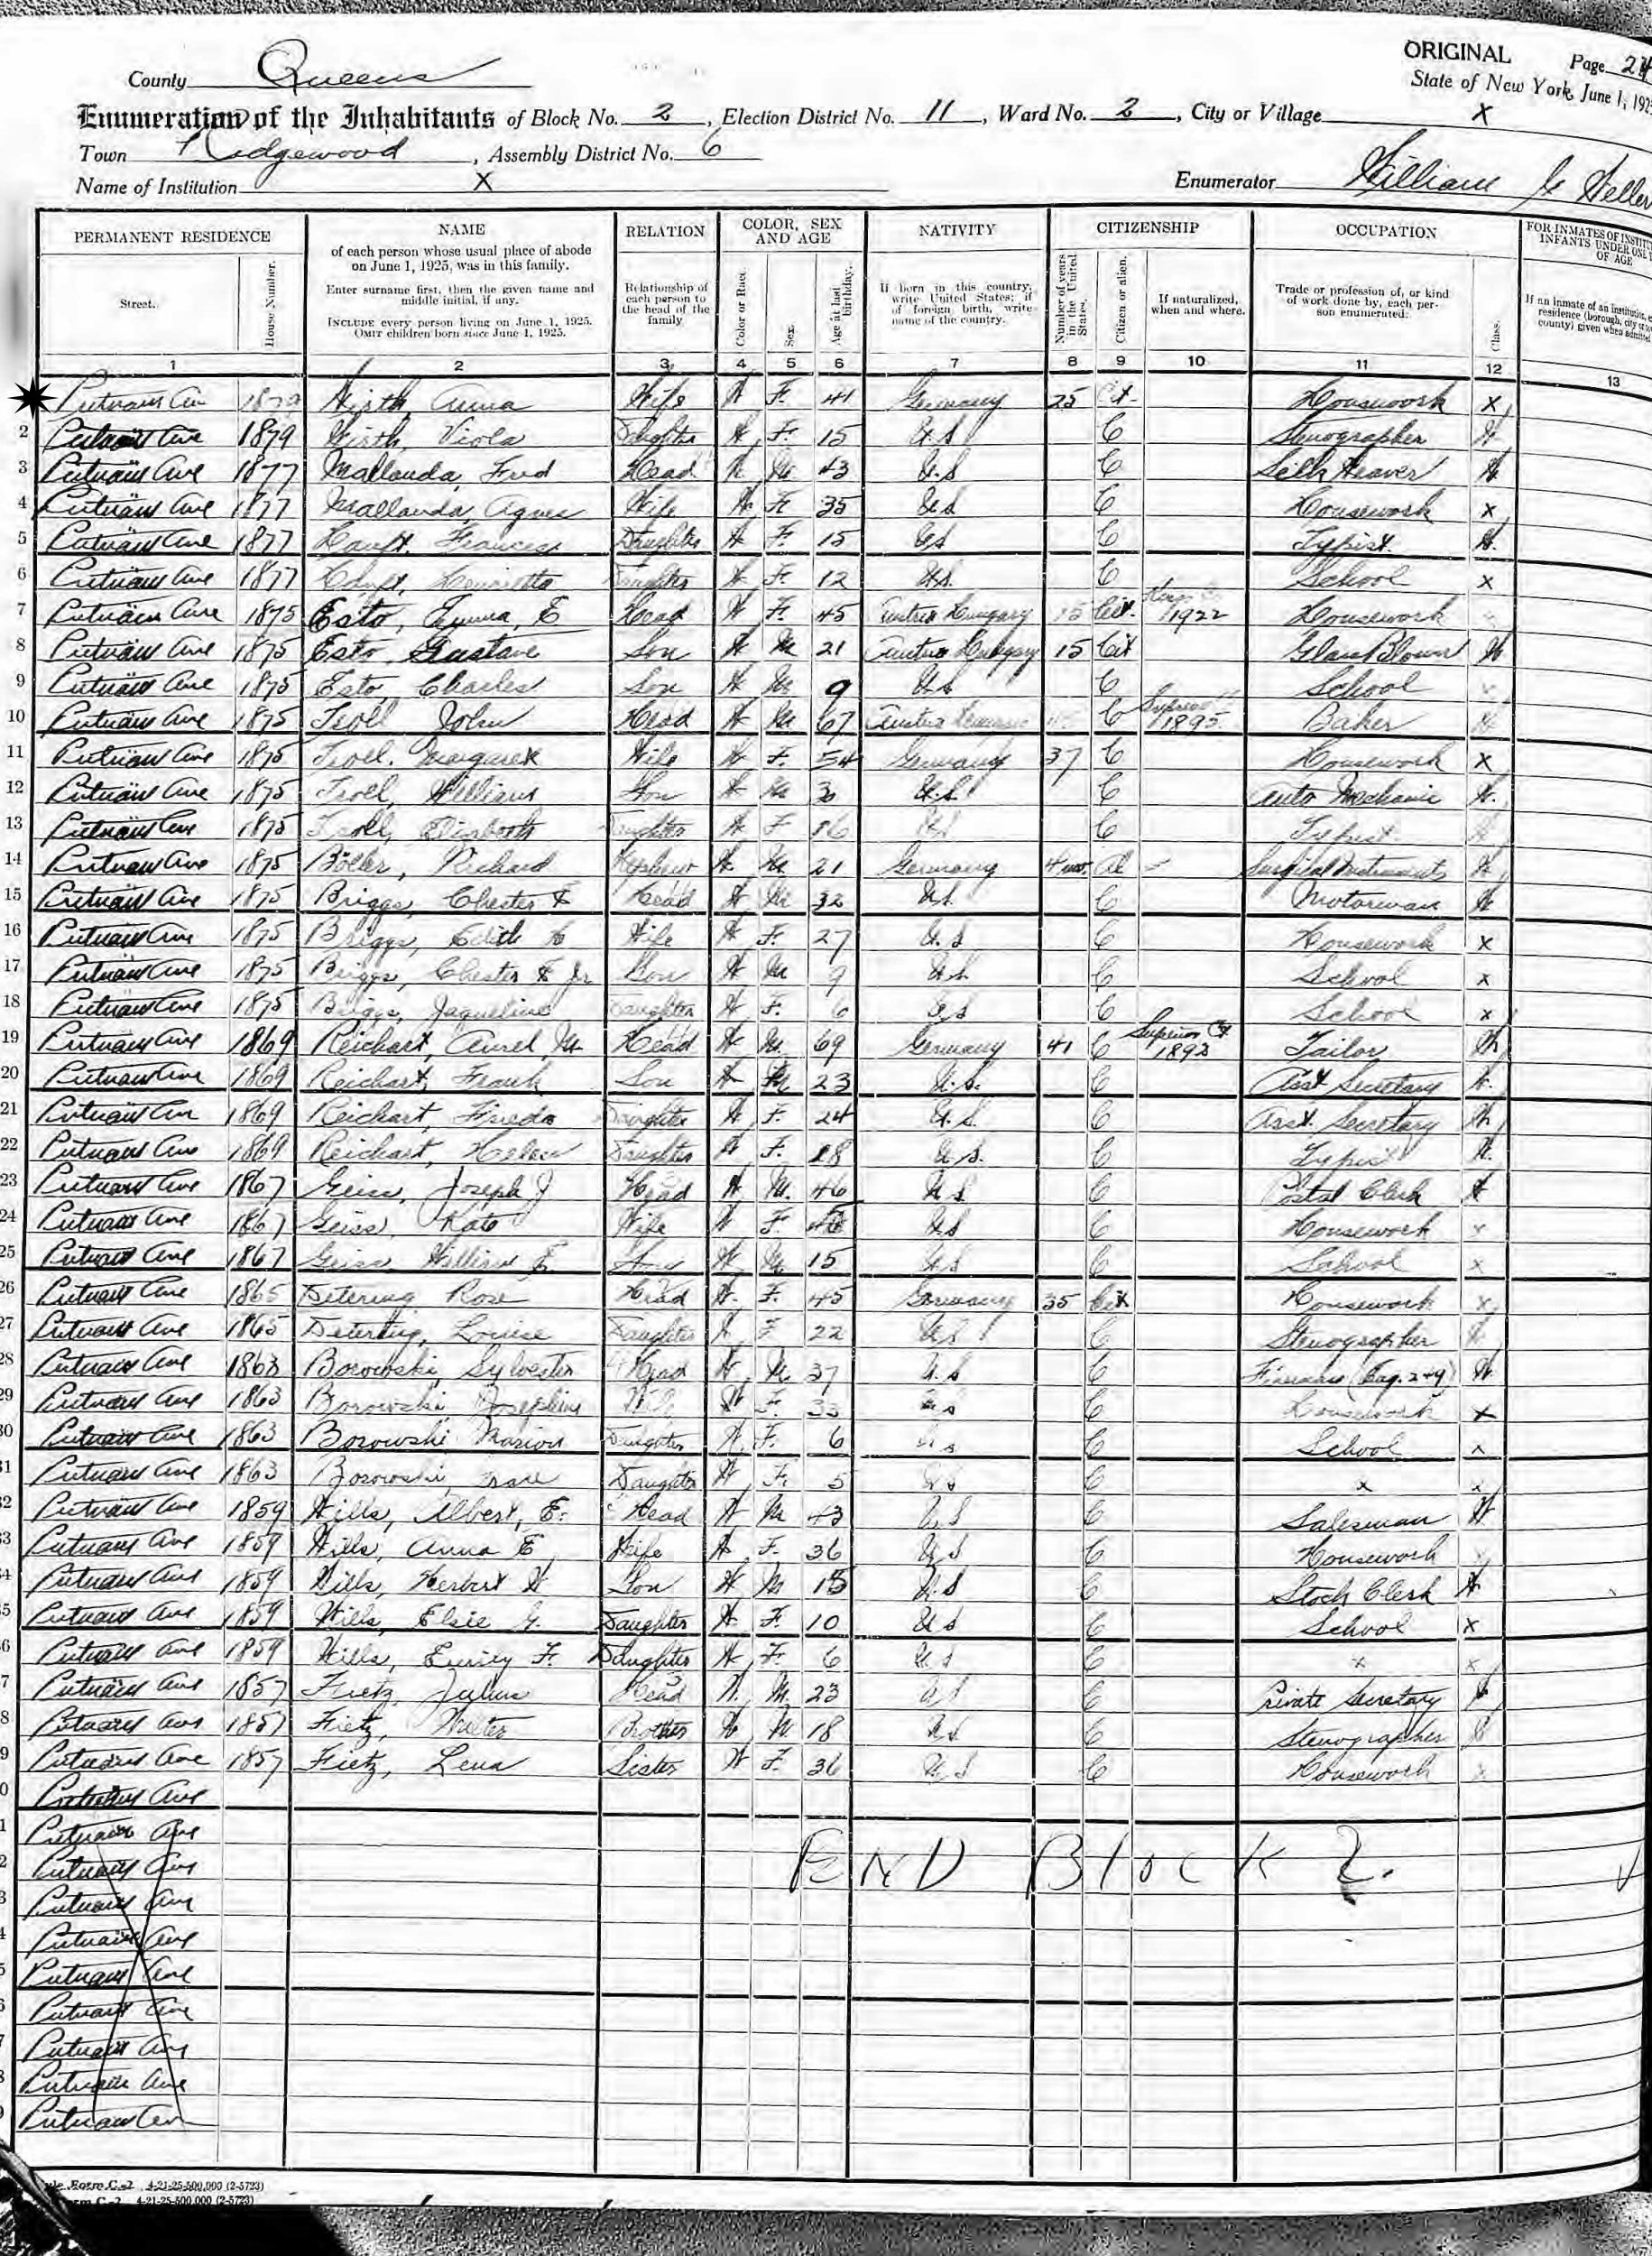 ORIGINAL Page 24
County Queens State of New York, June 1, 192
Enumeration of the Inhabitants of Block No. 2, Election District No. 11, Ward No. 2, City or Village X
Town Ridgewood, Assembly District No. 6
Name of Institution X Enumerator William G Heller
PERMANENT RESIDENCE NAME RELATION COLOR, SEX AND AGE NATIVITY CITIZENSHIP OCCUPATION FOR INMATES OF INSTIT INFANTS UNDER ONE OF AGE
Street. House Number. of each person whose usual place of abode on June 1, 1925, was in this family. Enter surname first, then the given name and middle initial, if any. INCLUDE every person living on June 1, 1925. OMIT children born since June 1, 1925. Relationship of each person to the head of the family Color or Race. Sex. Age at last birthday. If born in this country, write United States; if of foreign birth, write name of the country. Number of years in the United States. Citizen or alien. If naturalized, when and where. Trade or profession of, or kind of work done by, each person enumerated. Class. If an inmate of an institution, residence (borough, city or county) given when admitted
1 2 3 4 5 6 7 8 9 10 11 12 13
Putnam Av 1879 Wirth, Anna Wife W F. 41 Germany 25 Cit. Housework x
2 Putnam Ave 1879 Wirth, Viola Daughter W F. 15 U S C Stenographer W
3 Putnam Ave 1877 Mallanda, Fred Head W M 43 U.S C Silk Weaver W
4 Putnam Ave 1877 Mallanda, Agnes Wife W F. 35 U S C Housework x
5 Putnam Ave 1877 Haupt, Frances Daughter W F. 15 U S C Typist W.
6 Putnam Ave 1877 Haupt, Henrietta Daughter W F. 12 U.S. C School x
7 Putnam Ave 1875 Esto, Emma, E Head W F. 45 Austria Hungary 15 Cit. 1922 Housework
8 Putnam Ave 1875 Esto Gustave Son W M 21 Austria Hungary 15 Cit Glass Blower W
9 Putnam Ave 1875 Esto, Charles Son W M 9 U S C School x
10 Putnam Ave 1875 Troll John Head W M 67 Austria C Supreme 1895 Baker W
11 Putnam Ave 1875 Troll, Margaret Wife W F. 54 Germany 37 C Housework x
12 Putnam Ave 1875 Troll, William Son W M U.S. C Auto Mechanic W.
13 Putnam Ave 1875 Troll, Elizabeth Daughter W F 16 U S C Typist W
14 Putnam Ave 1875 Richard Nephew W M. 21 Germany 4 mos. Al Surgical Instruments W
15 Putnam Ave 1875 Briggs, Chester F Head W M 32 U S. C Motorman W
16 Putnam Ave 1875 Briggs, Edith Wife W F. 27 U.S C Housework x
17 Putnam Ave 1875 Briggs, Chester F Jr Son W M 9 U S. C School x
18 Putnam Ave 1875 Briggs, Jaqueline Daughter W F. 6 U S C School x
19 Putnam Ave 1869 Reichart, Aurel M. Head W M. 69 Germany 41 C Superior Ct 1892 Tailor W
20 Putnam Ave 1869 Reichart, Frank Son W M 23 U.S. C Asst Secretary W.
21 Putnam Av 1869 Reichart, Frieda Daughter W F. 24 U.S. C Asst. Secretary W
22 Putnam Ave 1869 Reichart, Helen Daughter W F. 18 U.S. C Typist W.
23 Putnam Ave 1867 Geiss, Joseph J Head W M. 46 U S C Postal Clerk W
24 Putnam Ave 1867 Geiss, Kate Wife W F. U S C Housework x
25 Putnam Ave 1867 Geiss, William F. Son W M 15 U S C School x
26 Putnam Ave 1865 Detering Rose Head W. F. 45 Germany 35 Cit Housework x
27 Putnam Ave 1865 Detering, Louise Daughter W F 22 U S C Stenographer W
28 Putnam Ave 1863 Borowski, Sylvester Head W M. 37 U.S C Fireman (Eng. 249) W.
29 Putnam Ave 1863 Borowski, Josephine Wife W F. 33 U S C Housework x
30 Putnam Ave 1863 Borowski Marion Daughter W F. 6 U S C School x
31 Putnam Ave 1863 Borowski, Daughter W F. 5 U S C x x
32 Putnam Ave 1859 Wills, Albert, E. Head W M 43 U.S C Salesman W
33 Putnam Ave 1859 Wills, Anna E Wife W F. 36 U S C Housework x
34 Putnam Ave 1859 Wills, Herbert W Son W M 15 U.S C Stock Clerk W
35 Putnam Ave 1859 Wills, Elsie G. Daughter W F. 10 U S C School x
36 Putnam Ave 1859 Wills, Emily F. Daughter W F. 6 U S C x x
37 Putnam Ave 1857 Fietz, Julius Head W. M. 23 U S C Private Secretary W
38 Putnam Ave 1857 Fietz, Walter Brother W M 18 U S C Stenographer W
39 Putnam Ave 1857 Fietz, Lena Sister W F. 36 U S C Housework x
0 Putnam Ave
1 Putnam Ave
2 Putnam Ave END Block 2.
3 Putnam Ave
4 Putnam Ave
5 Putnam Ave
6 Putnam Ave
7 Putnam Ave
8 Putnam Ave
9 Putnam Av
Form C-2 4-21-25-500,000 (2-5723)
rm C-2 4-21-25-500,000 (2-5723)